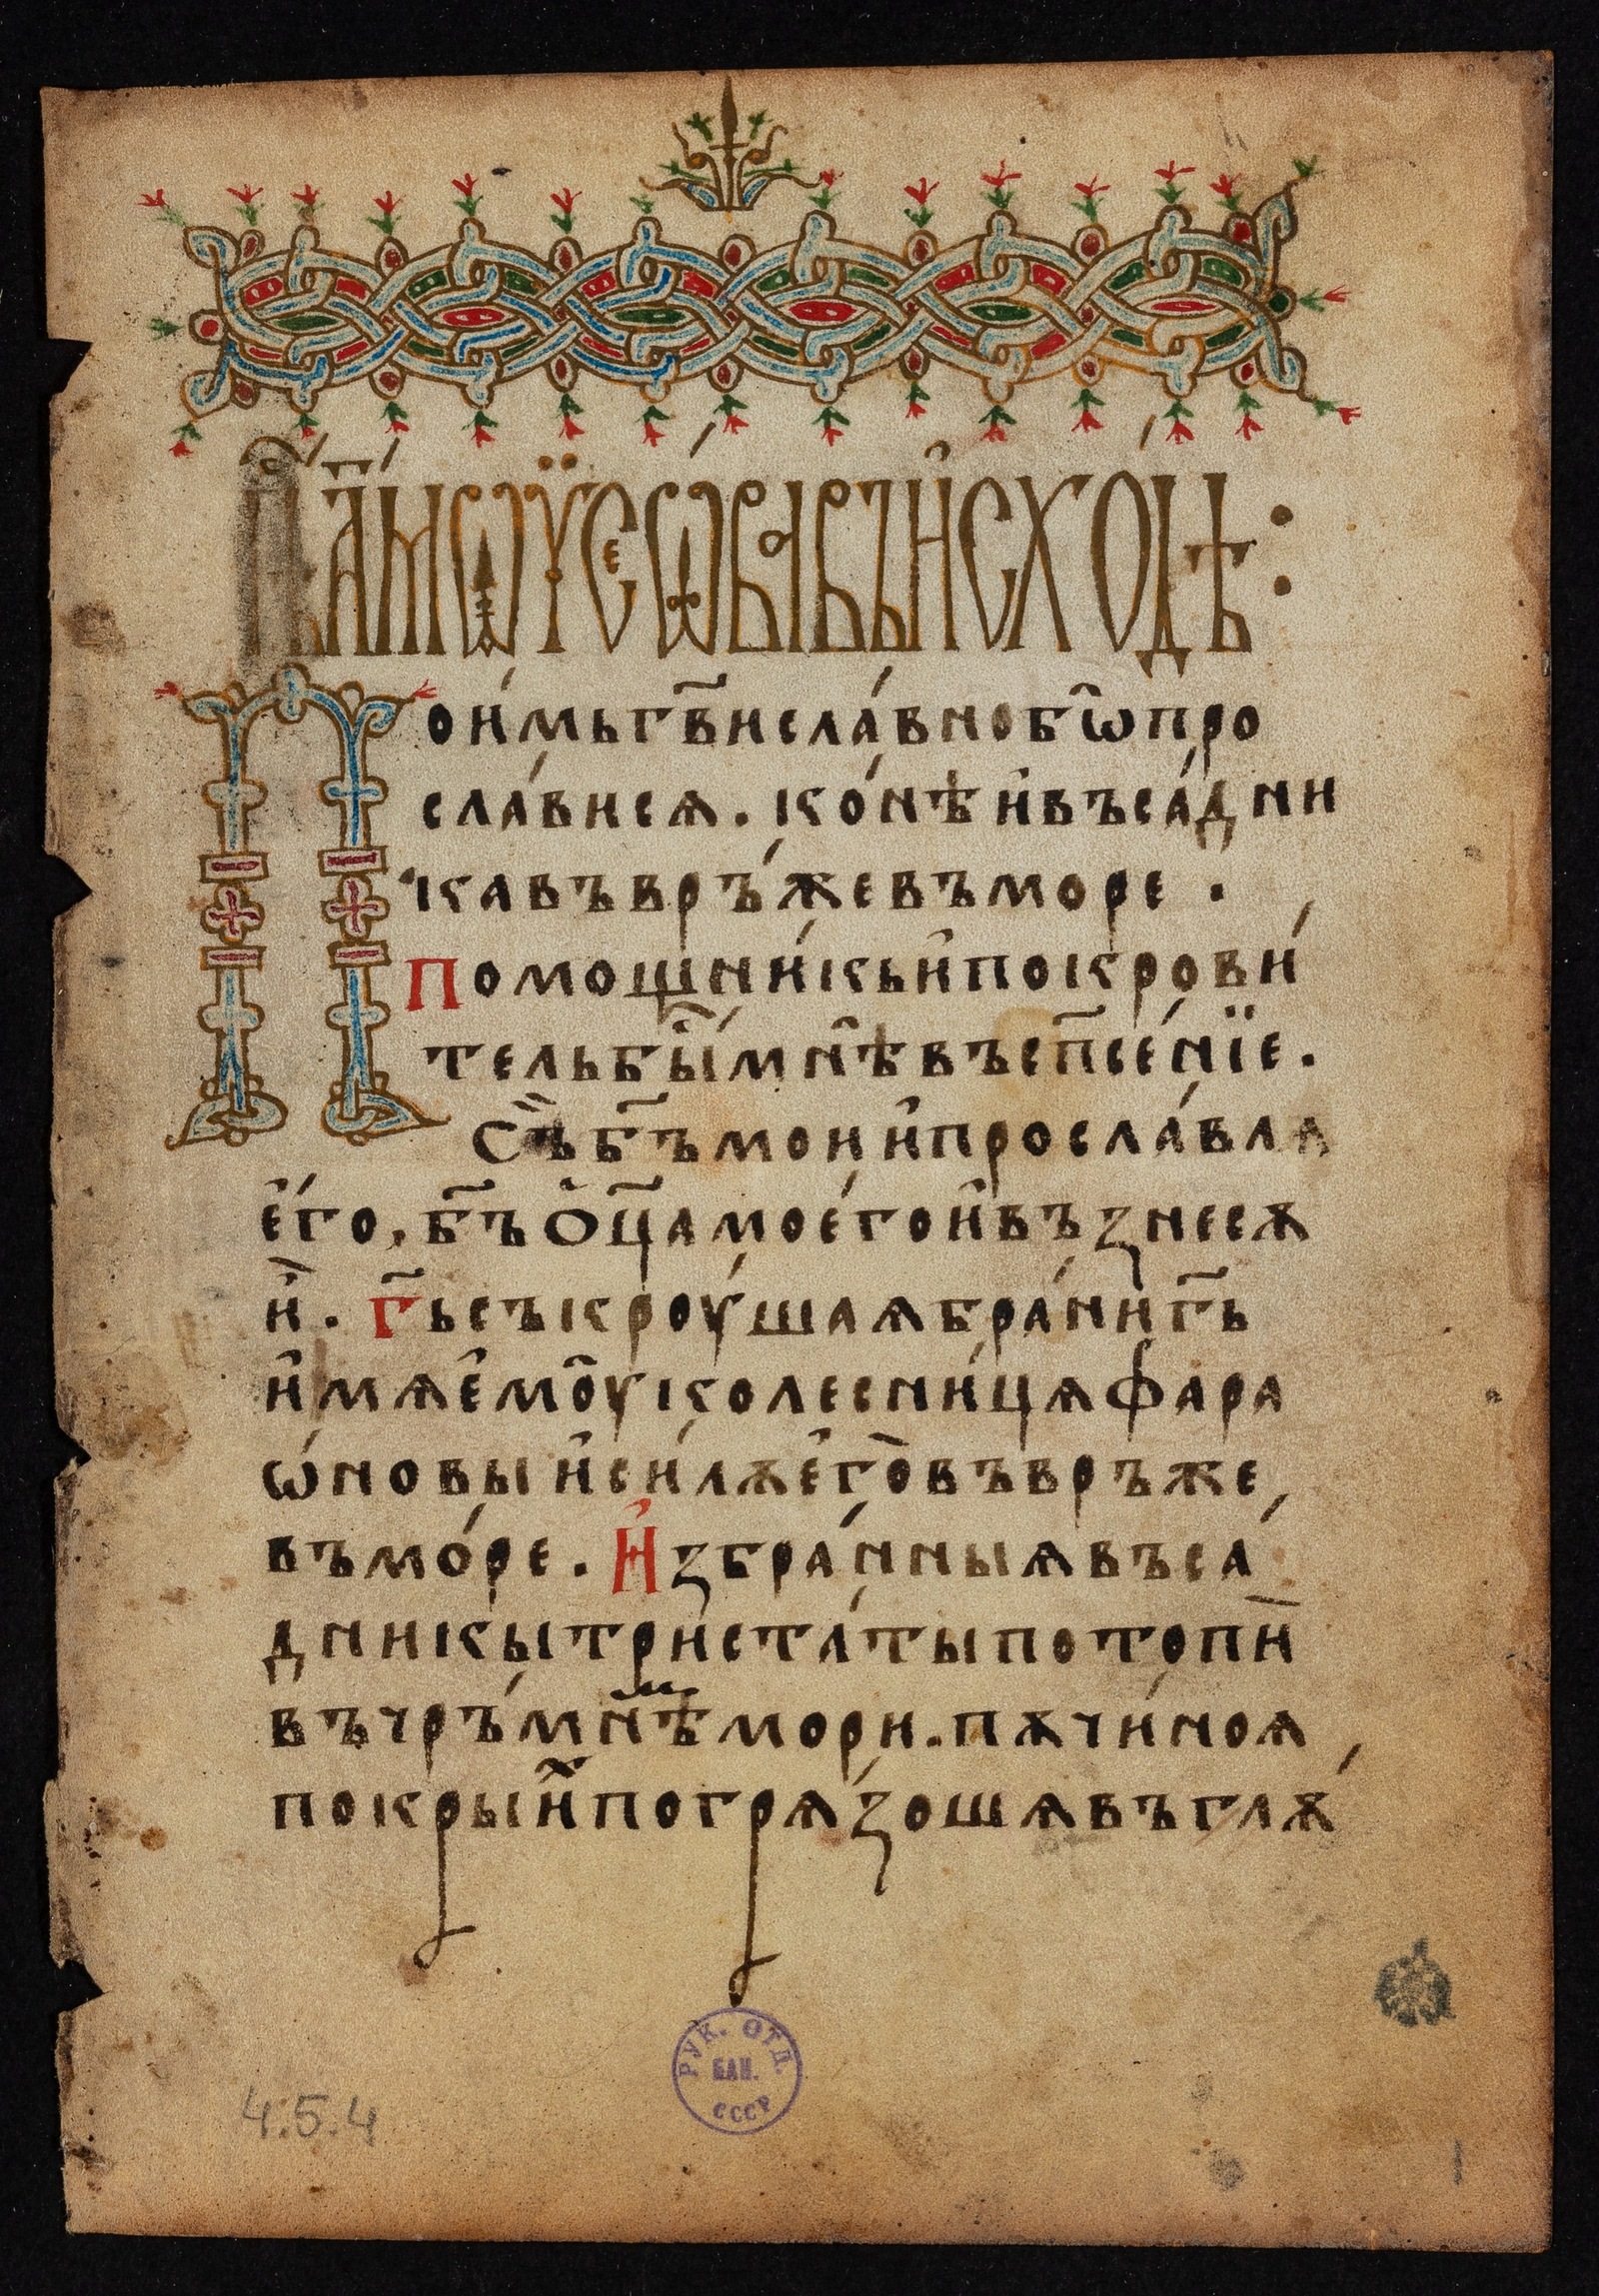 Пѣ҆́ а҃ мѡѷсеѡ́ва въ и҆схо́дѣ :
Пои́мь гв҃и славно бѡ̑ про
сла́виса . ко́нѣ и҆ въса́дни
ка въвръ́же въ море ·
Помощни́кь и҆ покрови́
тель бы́ мнѣ̑ въ сп҃се́нїе .
Съ̀ б҃ъ мои и҆ просла́вла
е҆́го , б҃ъ ѻ҆ц҃а мое́го и҆ възнесѧ
и҆̀ . г҃ь съкроу́шаѧ бра́ни г҃ь
и҆мѧ е҆моу̑ колесни́цѧ фара
ѡ́новы и҆ си́лѫ е҆го̀ въвръже
въ мо́ре . И҆збра́нныѧ въса́
дникы три́ста́ты потопѝ
въ чръ́мнѣмь мори . пѫчи́ноѧ
покры и҆̀ погрѧ́зошѧ въ глѫ́
РУК. ОТД.
БАН.
СССР
4.5.4
1